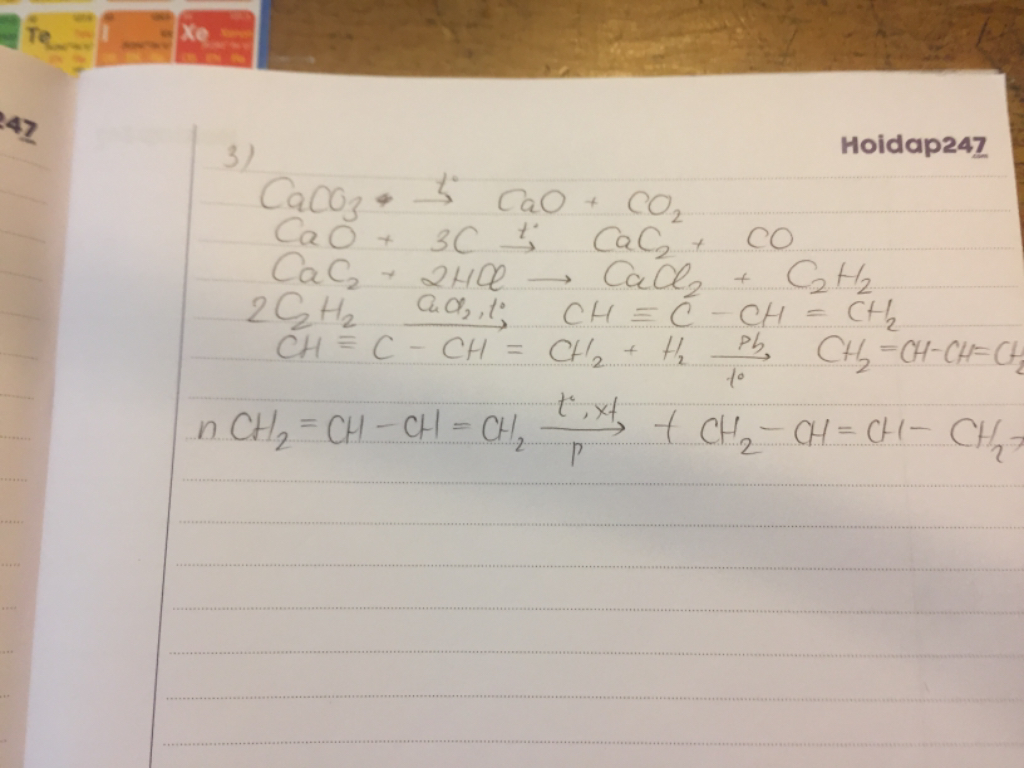 Te I Xe
247
Hoidap247
3)
CaCO₃ →t° CaO + CO₂
CaO + 3C →t° CaC₂ + CO
CaC₂ + 2HCl → CaCl₂ + C₂H₂
2C₂H₂ →CuCl₂, t° CH ≡ C - CH = CH₂
CH ≡ C - CH = CH₂ + H₂ →Pb, t° CH₂ = CH-CH=CH₂
n CH₂ = CH - CH = CH₂ →t°, xt, p ( CH₂ - CH = CH - CH₂ )